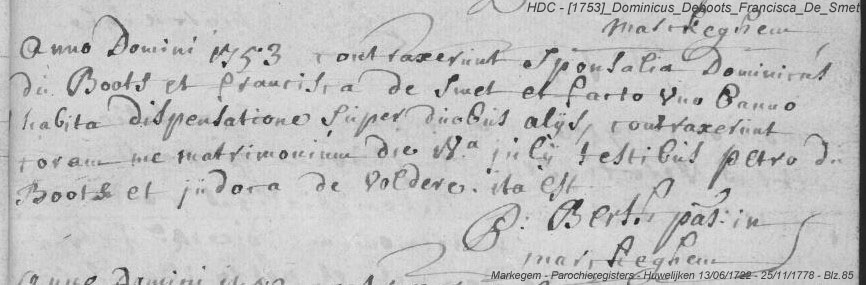 HDC - [1753]_Dominicus_Deboots_Francisca_De_Smet
marckeghem
Anno Domini 1753 contraxerunt sponsalia Dominicus
du Boots et francisca de smet et facto uno banno
habita dispensatione super duobus alijs, contraxerunt
coram me matrimonium die julij testibus petro du
Boots et judoca de voldere. ita est
past: in
marckeghem
Anno Domini
Markegem - Parochieregisters - Huwelijken 13/06/1722 - 25/11/1778 - Blz.85